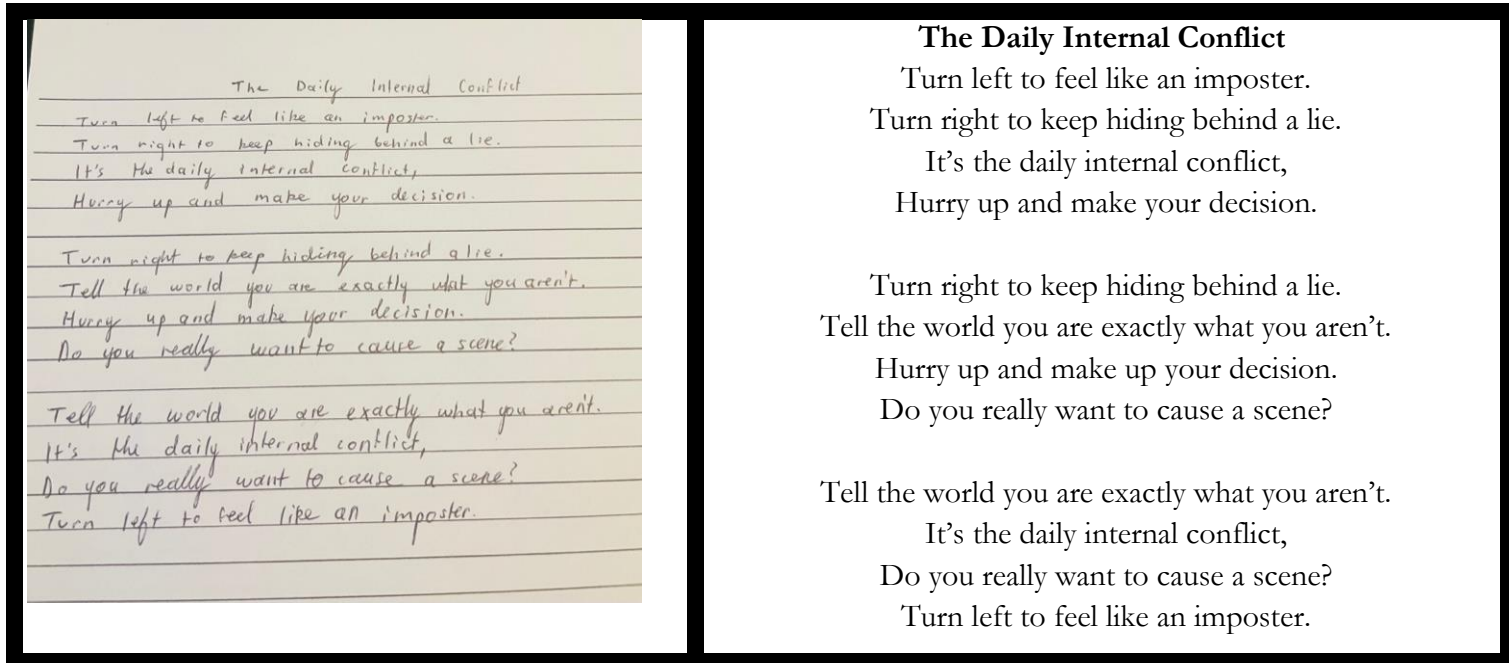 The Daily Internal Conflict
Turn left to feel like an imposter.
Turn right to keep hiding behind a lie.
It's the daily internal conflict,
Hurry up and make your decision.
Turn right to keep hiding behind a lie.
Tell the world you are exactly what you aren't.
Hurry up and make your decision.
Do you really want to cause a scene?
Tell the world you are exactly what you aren't.
It's the daily internal conflict,
Do you really want to cause a scene?
Turn left to feel like an imposter.
The Daily Internal Conflict
Turn left to feel like an imposter.
Turn right to keep hiding behind a lie.
It’s the daily internal conflict,
Hurry up and make your decision.
Turn right to keep hiding behind a lie.
Tell the world you are exactly what you aren’t.
Hurry up and make up your decision.
Do you really want to cause a scene?
Tell the world you are exactly what you aren’t.
It’s the daily internal conflict,
Do you really want to cause a scene?
Turn left to feel like an imposter.